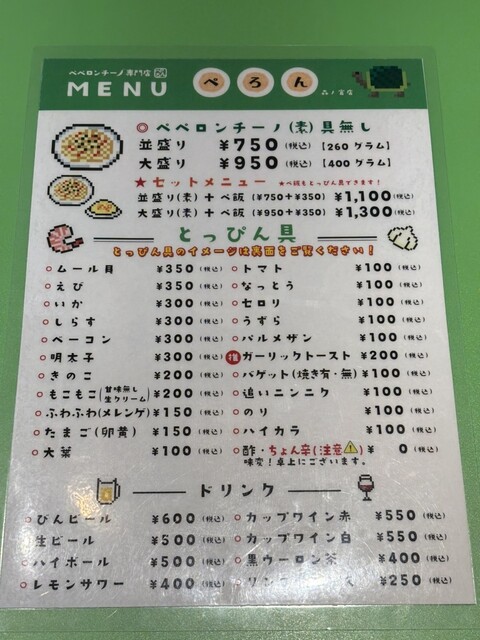 ペペロンチーノ専門店
MENU
ぺろん
品ノ宮店
◎ ペペロンチーノ(素)具無し
並盛り ¥750(税込)【260グラム】
大盛り ¥950(税込)【400グラム】
★セットメニュー ★ペ飯もとっぴん具できます！
並盛り(素)+ペ飯(¥750+¥350) ¥1,100(税込)
大盛り(素)+ペ飯(¥950+¥350) ¥1,300(税込)
とっぴん具
とっぴん具のイメージは裏面をご覧ください！
ムール貝 ¥350(税込)
えび ¥350(税込)
いか ¥300(税込)
しらす ¥300(税込)
ベーコン ¥300(税込)
明太子 ¥300(税込)
きのこ ¥200(税込)
もこもこ(甘味無し生クリーム) ¥200(税込)
ふわふわ(メレンゲ) ¥150(税込)
たまご(卵黄) ¥150(税込)
大葉 ¥100(税込)
トマト ¥100(税込)
なっとう ¥100(税込)
セロリ ¥100(税込)
うずら ¥100(税込)
パルメザン ¥100(税込)
ガーリックトースト ¥200(税込)
バゲット(焼き有・無) ¥100(税込)
追いニンニク ¥100(税込)
のり ¥100(税込)
ハイカラ ¥100(税込)
酢・ちょん辛(注意⚠) ¥0(税込)
味変！卓上にございます。
ドリンク
びんビール ¥600(税込)
生ビール ¥500(税込)
ハイボール ¥500(税込)
レモンサワー ¥400(税込)
カップワイン赤 ¥550(税込)
カップワイン白 ¥550(税込)
黒ウーロン茶 ¥400(税込)
リンゴ ¥250(税込)